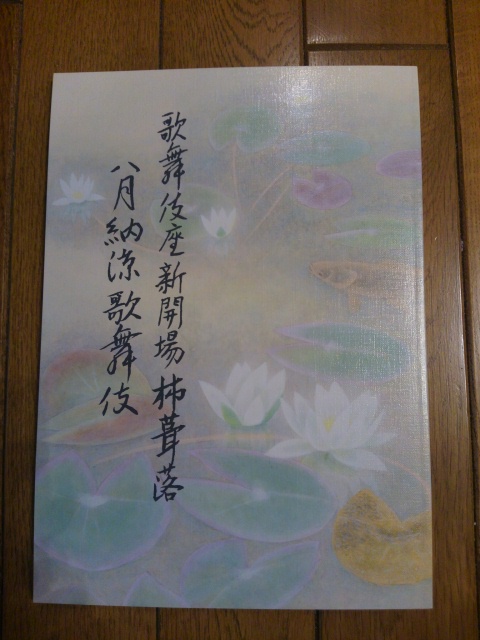 歌舞伎座新開場柿葺落
八月納涼歌舞伎